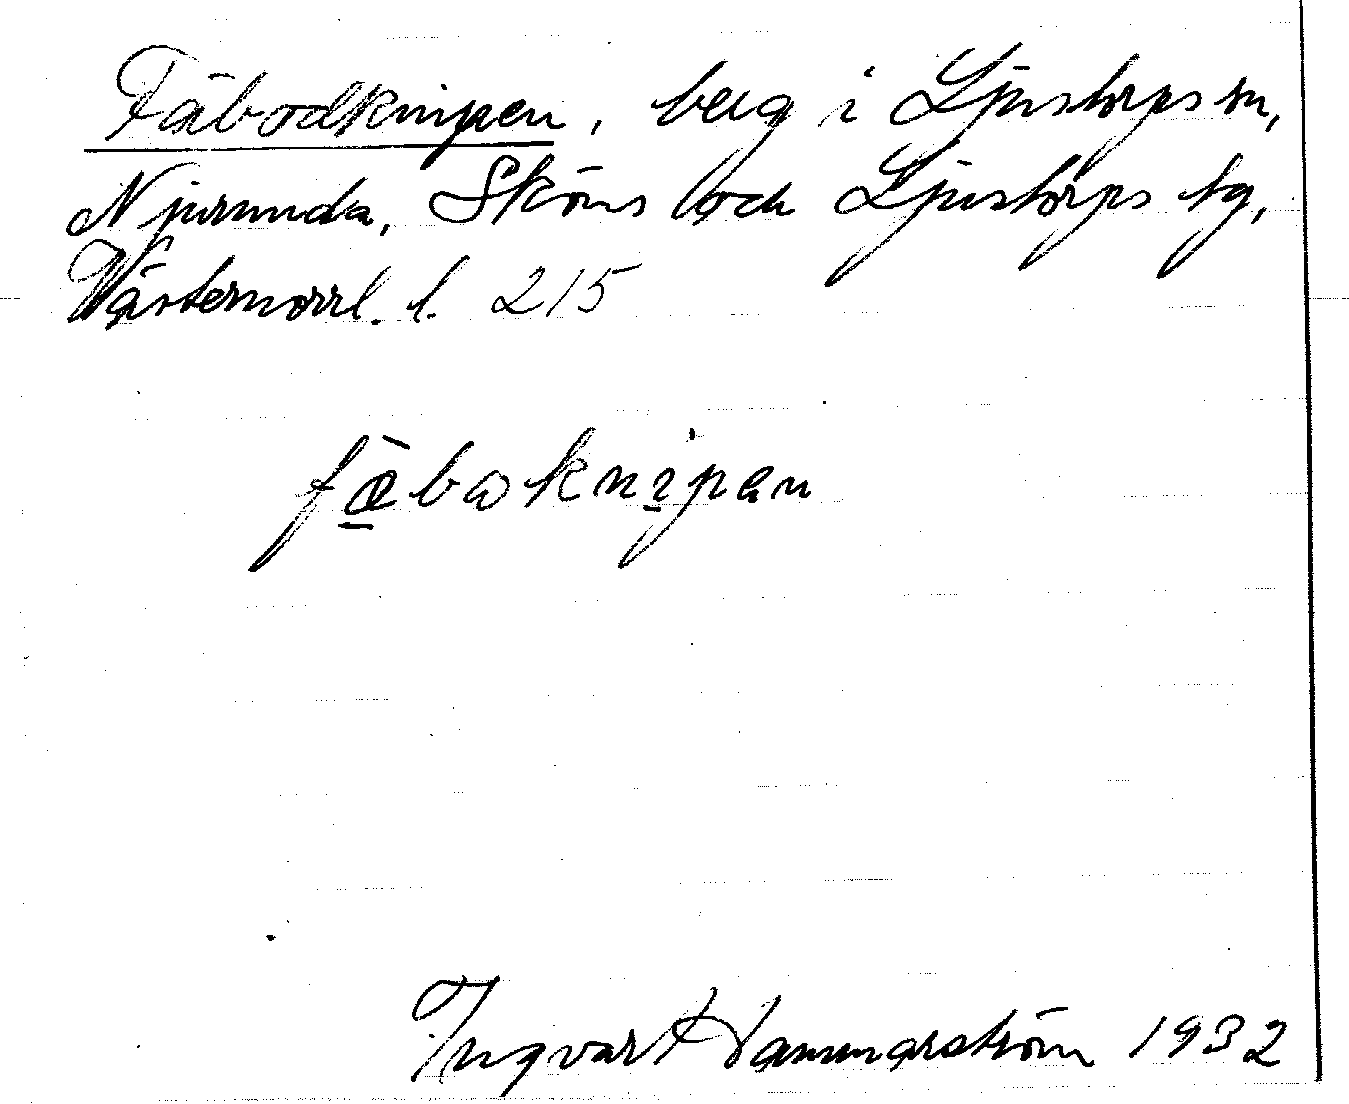 Fäbodknipen, berg i Ljustorps sn,
Njurunda, Sköns och Ljustorps tg,
Västernorrl. l. 215
fæ̀baknipan
Ingvar Hammarström 1932